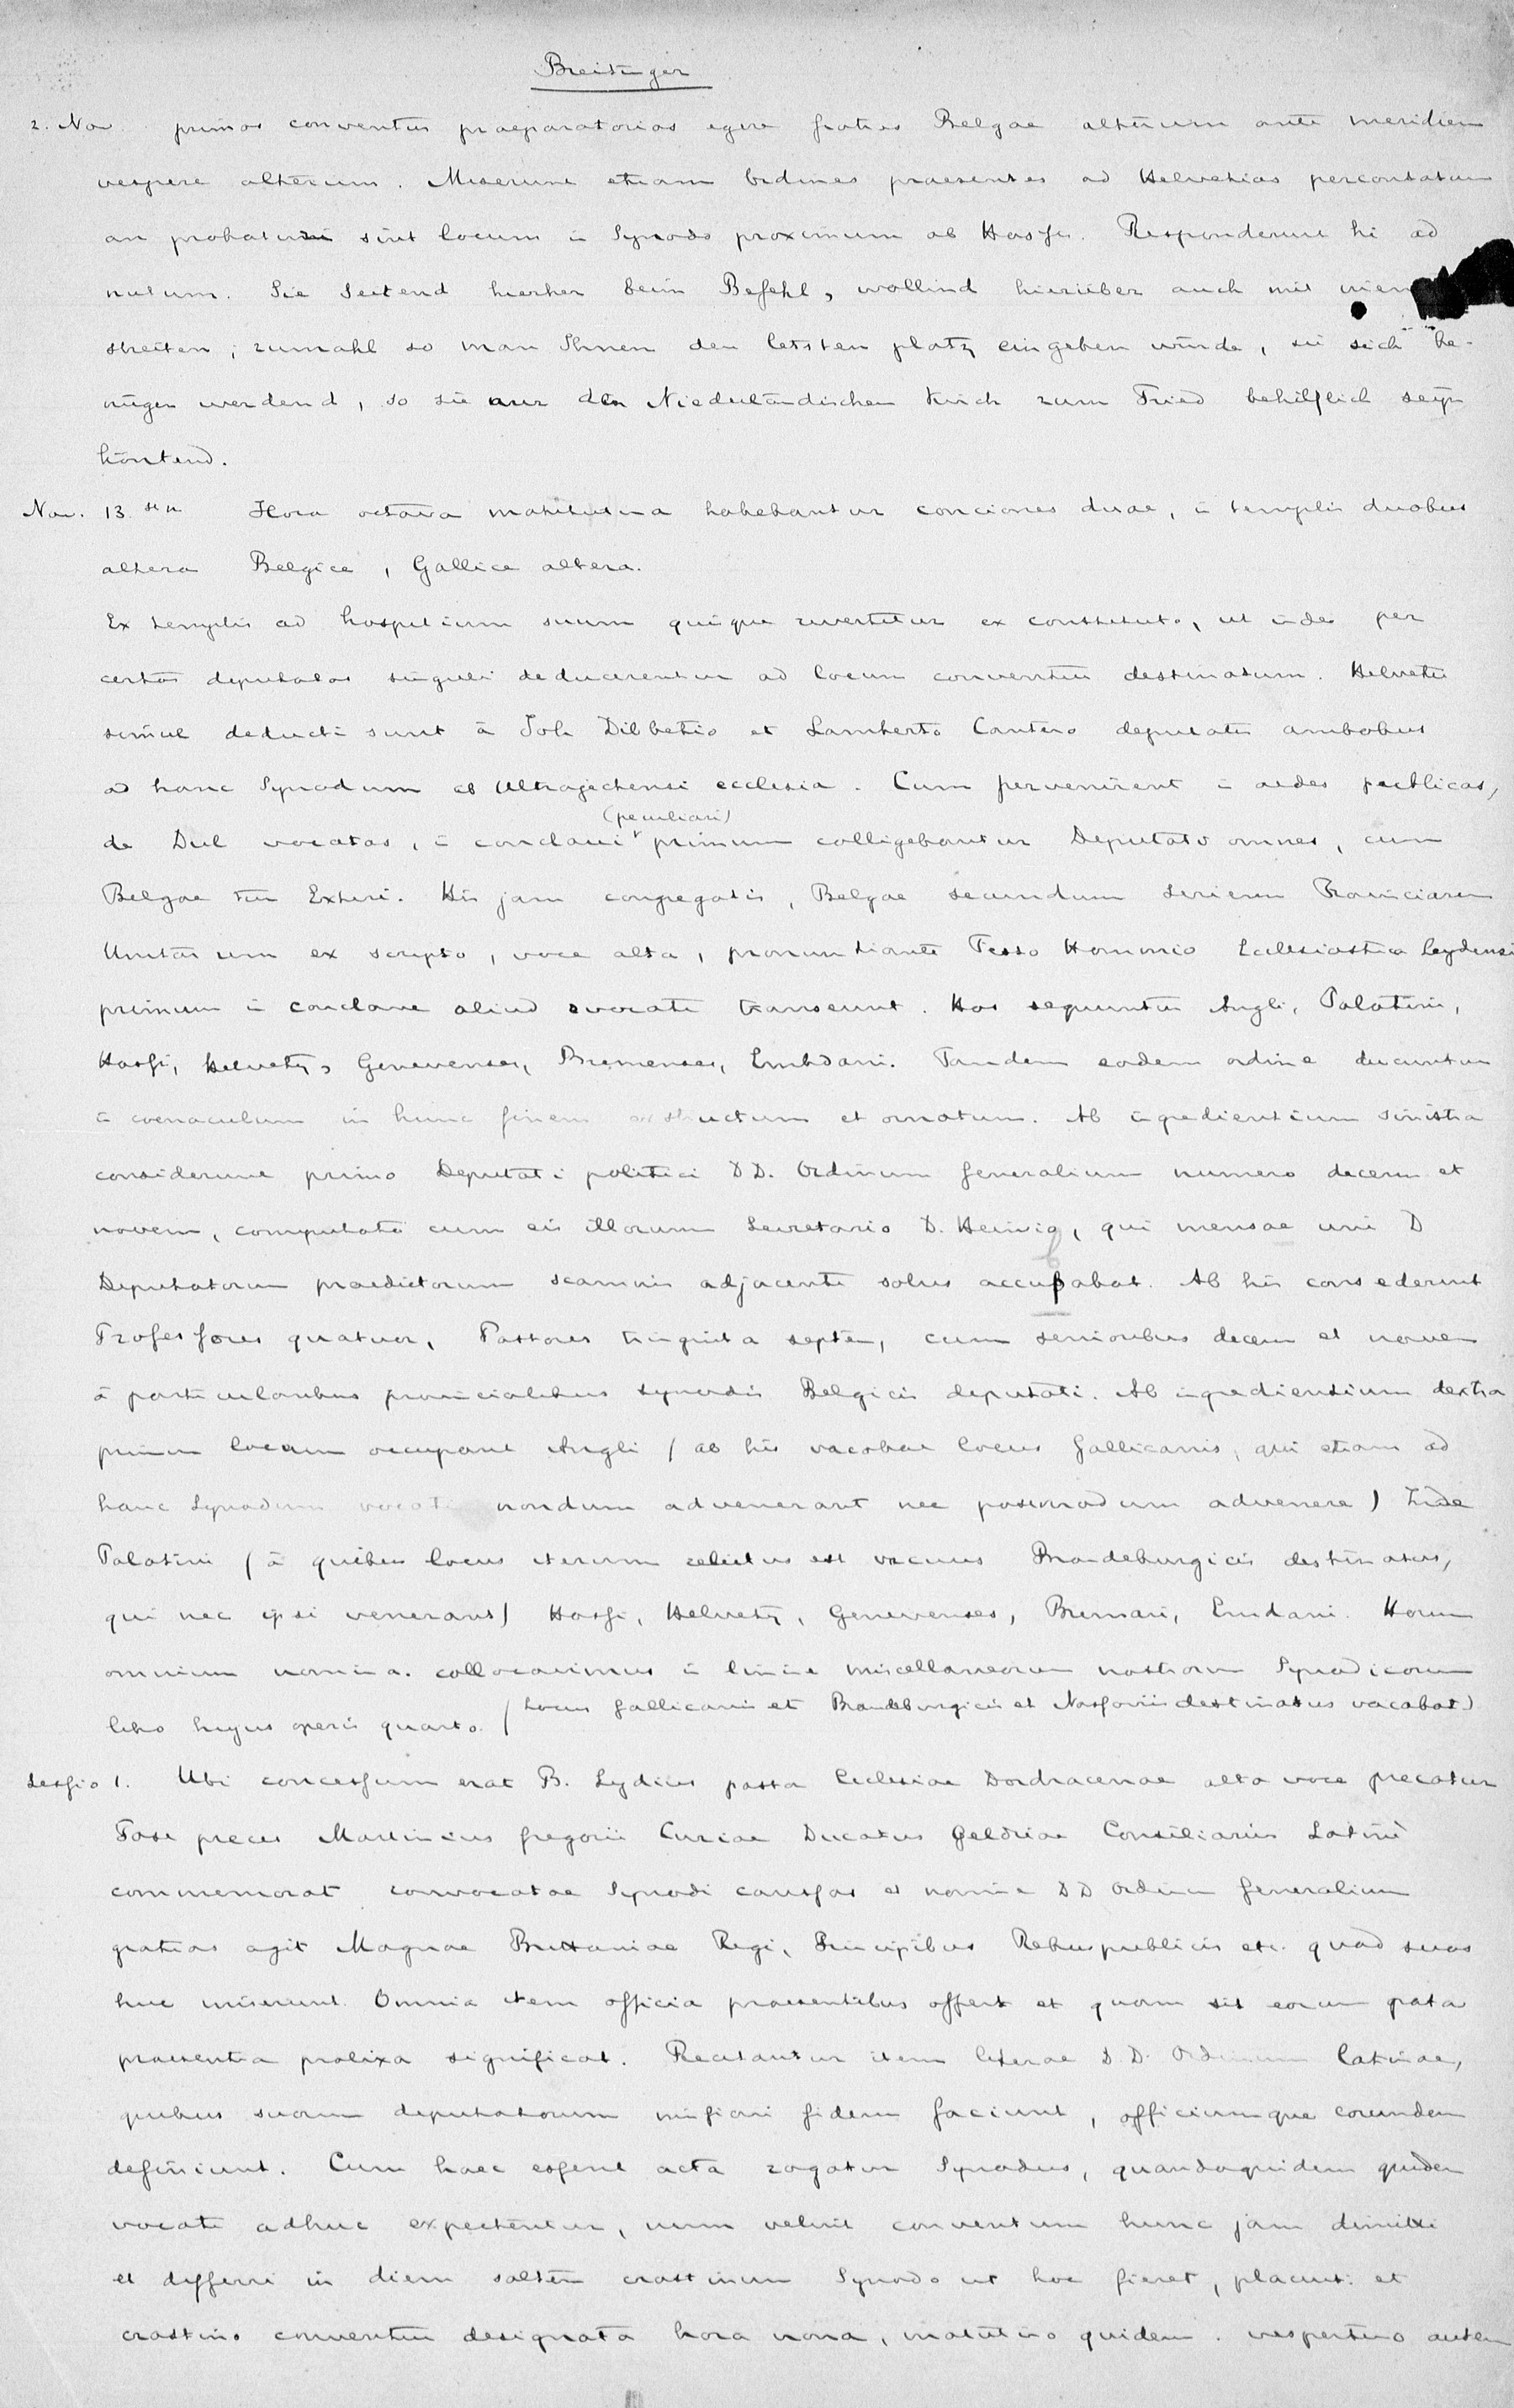 Breitinger
2. Nov. primos conventus praeparatorios egere fratres Belgae alterum ante meridiem
vespere alterum. Miserunt etiam bidines praesentes ad Helvetios percontatum
an probaturi sint locum in Synodo proximum ab Hassis. Responderunt hi ad
nutum. Sie seitend hierher beim Befehl, wollind hierüber auch mit
streiten, zumahl so man Ihnen den letsten platz eingeben würde, sie sich be-
nügen werdend, so sie nur den Niederländischen Kirch zum Fried behilflich seyn
köntend.
Nov. 13 Hora octava matutina habebantur conciones duae, in templis duobus
altera Belgice, Gallice altera.
Ex templis ad hospitium suum quisque revertitur ex constituto, ut inde per
certos deputatos singuli deducerentur ad locum conventui destinatum. Helvetii
simul deducti sunt à Joh Dilbetio et Lamberto Cantero deputatis ambobus
ad hanc Synodum ab Ultrajectensi ecclesia. Cum pervenirent in aedes publicas,
de Dul vocatas, in conclavi (peculiari) primum colligebantur Deputati omnes, cum
Belgae tum Exteri. His jam congregatis, Belgae secundum seriem Provinciarum
Unitarum ex scripto, voce alta, pronuntiante Festo Hommio Ecclesiastica Leydensi
primum in conclave aliud evocati transeunt. Hos sequuntur Angli, Palatini,
Hassi, Helvetij, Genevenses, Bremenses, Embdani. Tandem eodem ordine ducuntur
in coenaculum in hunc finem exstructum et ornatum. Ab ingredientium sinistra
considerunt primo Deputati politici DD. Ordinum Generalium numero decem et
novem, computato cum eis illorum Secretario D. Heinsio, qui mensae uni D
Deputatorum praedictorum scamnis adjacenti solus accupabat. Ab his consederunt
Professores quatuor, Pastores triginta septem, cum senioribus decem et novem
à particularibus provincialibus synodis Belgicis deputati. Ab ingredientium dextra
primum locum occupant Angli (ab his vacabat locus Gallicanis, qui etiam ad
hanc Synodum vocati nondum advenerant nec postmodum advenere) Inde
Palatini (à quibus locus iterum relictus est vacuus Brandeburgicis destinatus,
qui nec ipsi venerant) Hassi, Helvetij, Genevenses, Bremani, Emdani. Horum
omnium nomina. collocavimus in limine miscellaneorum nostrorum Synodicorum
libro hujus operis quarto. (Locus Gallicanis et Brandeburgicis et Nassoviis destinatus vacabat)
Sessio 1. Ubi concessum erat B. Lydius pastor Ecclesiae Dordracenae alta voce precatur
Post preces Martinius Gregorii Curiae Ducatus Geldriae Consiliarius Latinè
commemorat convocatae Synodi caussas et nomine DD Ordinum Generalium
gratias agit Magnae Brittaniae Regi, Principibus Rebuspublicis etc. quod suos
huc miserunt. Omnia item officia praesentibus offert et quam sit eorum grata
praesentia prolixa significat. Recitantur item literae D.D. Ordinum Latinae,
quibus suorum deputatorum missioni fidem faciunt, officiumque eorundem
definiunt. Cum haec essent acta rogatur Synodus, quandoquidem quidem
vocati adhuc expectentur, num velint conventum hunc jam dimitti
et differri in diem saltem crastinum Synodo ut hoc fieret, placuit: et
crastino conventui designata hora nona, matutino quidem. vespertino autem